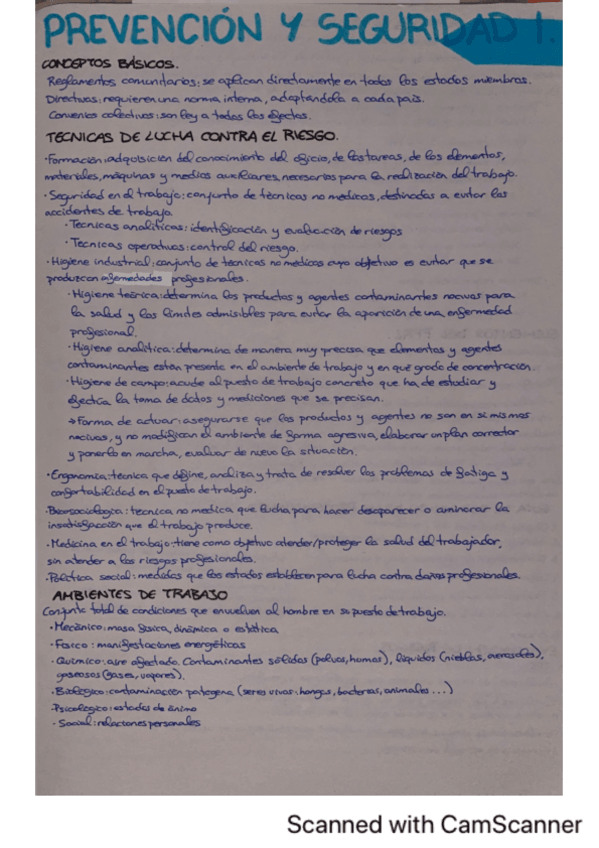 PREVENCIÓN Y SEGURIDAD 1.
CONCEPTOS BÁSICOS.
Reglamentos comunitarios: se aplican directamente en todos los estados miembros.
Directivas: requieren una norma interna, adaptándola a cada país.
Convenios colectivos: son ley a todos los efectos.
TECNICAS DE LUCHA CONTRA EL RIESGO.
· Formación: adquisición del conocimiento del oficio, de las tareas, de los elementos,
materiales, máquinas y medios auxiliares, necesarios para la realización del trabajo.
· Seguridad en el trabajo: conjunto de técnicas no médicas, destinadas a evitar los
accidentes de trabajo.
· Tecnicas analíticas: identificación y evaluación de riesgos
· Tecnicas operativas: control del riesgo.
· Higiene industrial: conjunto de tecnicas no medicas cuyo objetivo es evitar que se
produzcan enfermedades profesionales.
· Higiene teórica: determina los productos y agentes contaminantes nocivos para
la salud y los límites admisibles para evitar la aparición de una enfermedad
profesional.
· Higiene analítica: determina de manera muy precisa que elementos y agentes
contaminantes están presente en el ambiente de trabajo y en qué grado de concentración.
· Higiene de campo: acude al puesto de trabajo concreto que ha de estudiar y
efectúa la toma de datos y mediciones que se precisan.
→ Forma de actuar: asegurarse que los productos y agentes no son en si mismos
nocivos, y no modifican el ambiente de forma agresiva, elaborar un plan corrector
y ponerlo en marcha, evaluar de nuevo la situación.
· Ergonomía: técnica que define, analiza y trata de resolver los problemas de fatiga y
confortabilidad en el puesto de trabajo.
técnica no medica que lucha para hacer desaparecer o aminorar la
insatisfacción que el trabajo produce.
· Medicina en el trabajo: tiene como objetivo atender/proteger la salud del trabajador,
sin atender a los riesgos profesionales.
· Política social: medidas que los estados establecen para lucha contra daños profesionales.
AMBIENTES DE TRABAJO
Conjunto total de condiciones que envuelven al hombre en su puesto de trabajo.
· Mecánico: masa física, dinámica o estática
· Físico: manifestaciones energéticas
· Químico: aire afectado. Contaminantes sólidos (polvos, humos), líquidos (nieblas, aerosoles),
gaseosos (gases, vapores).
· Biológico: contaminación patogena (seres vivos: hongos, bacterias, animales...)
· Psicologico: estados de ánimo
· Social: relaciones personales
Scanned with CamScanner